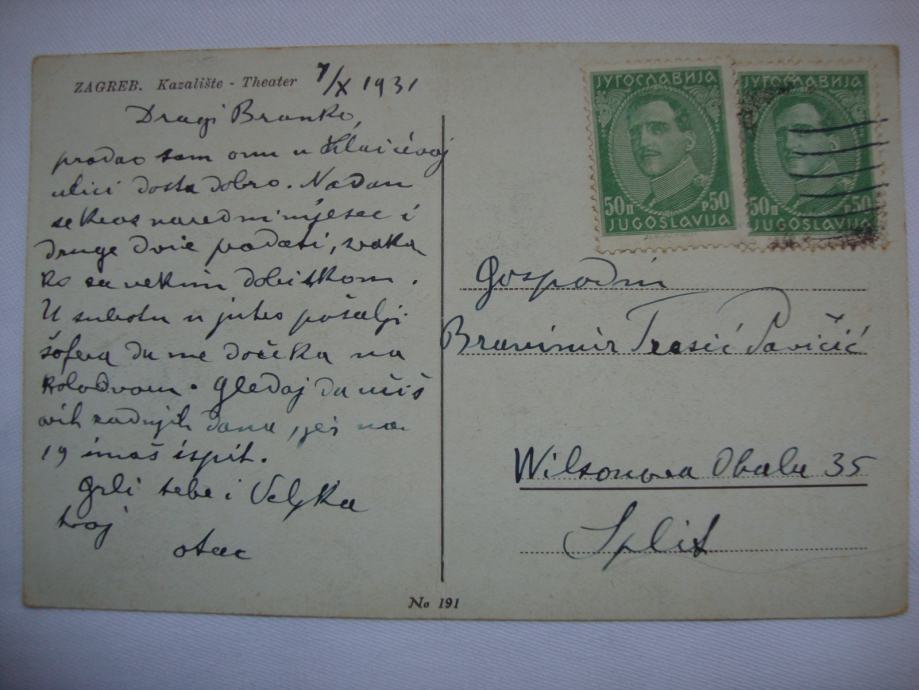 ZAGREB. Kazalište - Theater
7/X 1931
Dragi Branko,
prodao sam onu u Klaićevoj
ulici dosta dobro. Nadam
se kroz naredni mjesec i
druge dvie prodati, svaka
ko sa vekim dobitkom.
U subotu u jutro pošalji
šofera da me dočeka na
kolodvoru. Gledaj da učiš
ovih zadnjih dana, jer na
19 imaš ispit.
Grli tebe i Veljka
tvoj
otac
ЈУГОСЛАВИЈА
50п р50
JUGOSLAVIJA
ЈУГОСЛАВИЈА
50п р50
JUGOSLAVIJA
Gospodin
Branimir Tresić Pavičić
Wilsonova Obala 35
Split
No 191